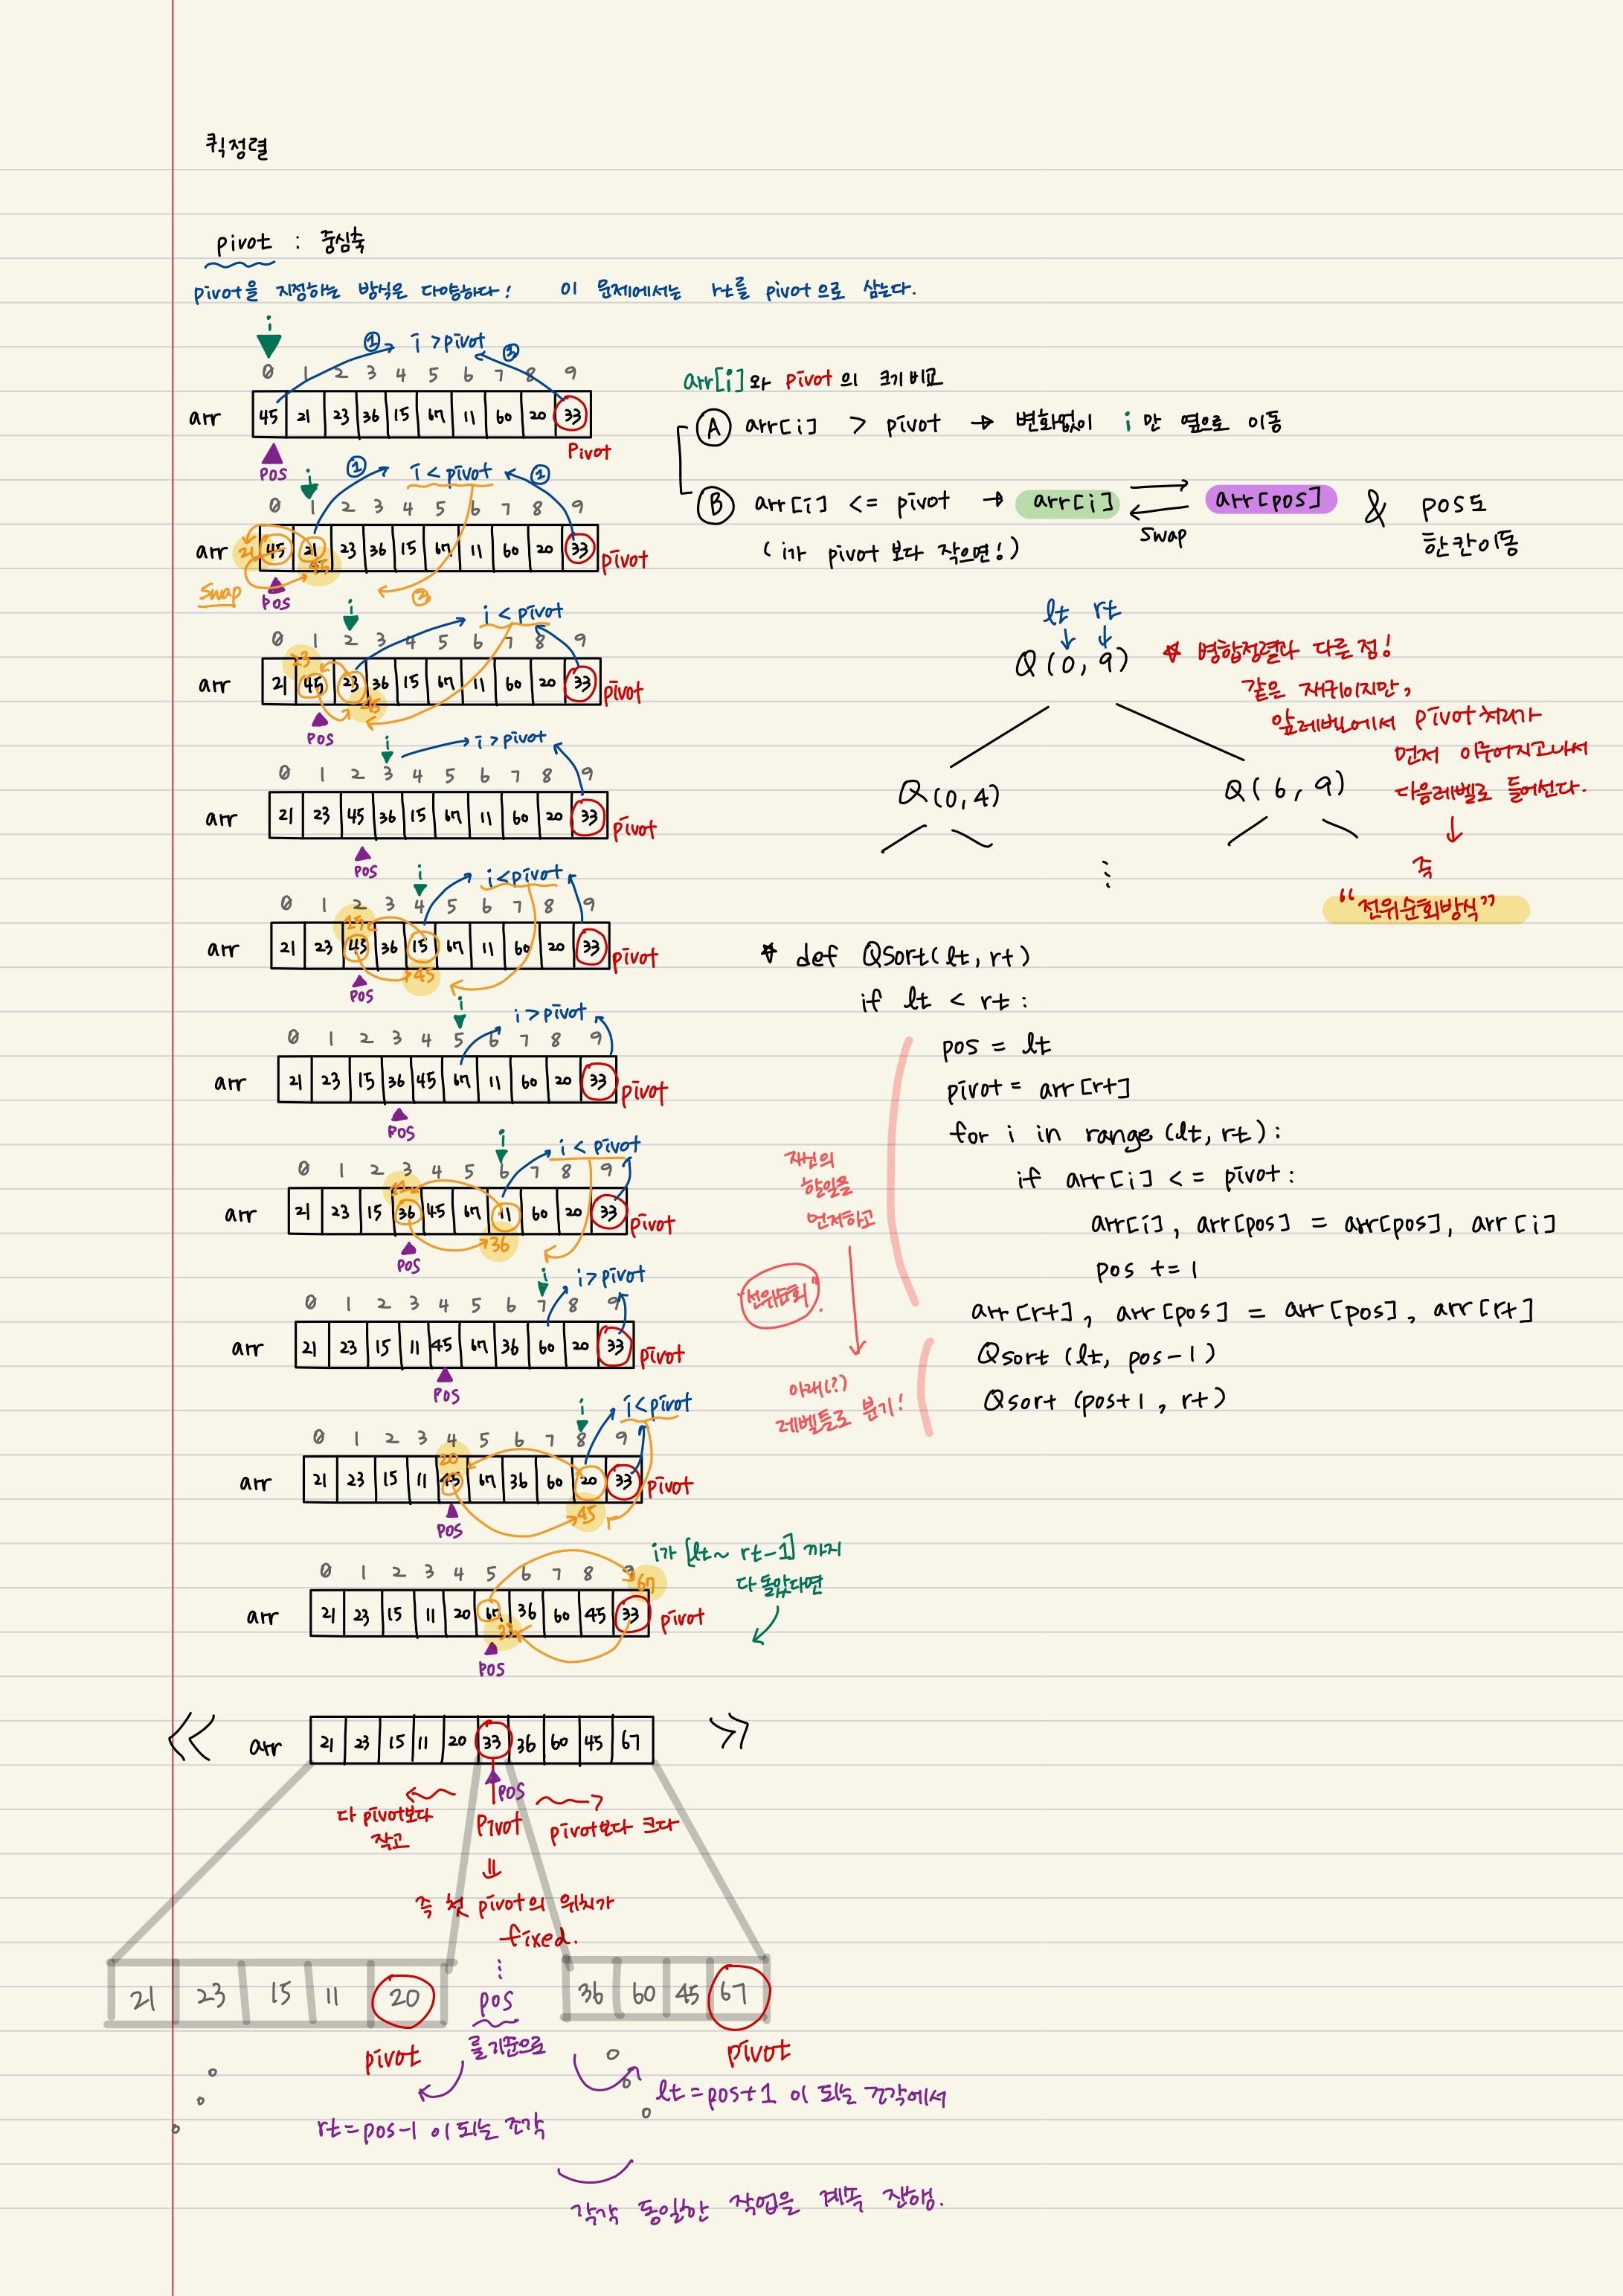 퀵정렬
pivot : 중심축
pivot을 지정하는 방식은 다양하다! 이 문제에서는 rt를 pivot으로 삼는다.
i
① i > pivot ②
0 1 2 3 4 5 6 7 8 9
arr 45 21 23 36 15 67 11 60 20 33
pivot
pos
i ① i < pivot ②
0 1 2 3 4 5 6 7 8 9
arr 21 45 21 23 36 15 67 11 60 20 33 pivot
45
swap pos ③
i i < pivot
0 1 2 3 4 5 6 7 8 9
23
arr 21 45 23 36 15 67 11 60 20 33 pivot
45
pos
i i > pivot
0 1 2 3 4 5 6 7 8 9
arr 21 23 45 36 15 67 11 60 20 33 pivot
pos
i i < pivot
0 1 2 3 4 5 6 7 8 9
15
arr 21 23 45 36 15 67 11 60 20 33 pivot
45
pos
i i > pivot
0 1 2 3 4 5 6 7 8 9
arr 21 23 15 36 45 67 11 60 20 33 pivot
pos
i i < pivot
0 1 2 3 4 5 6 7 8 9
11
arr 21 23 15 36 45 67 11 60 20 33 pivot
36
pos
i i > pivot
0 1 2 3 4 5 6 7 8 9
arr 21 23 15 11 45 67 36 60 20 33 pivot
pos
i i < pivot
0 1 2 3 4 5 6 7 8 9
20
arr 21 23 15 11 45 67 36 60 20 33 pivot
45
pos
i가 [lt~ rt-1] 까지
다 돌았다면
0 1 2 3 4 5 6 7 8 9
67
arr 21 23 15 11 20 67 36 60 45 33 pivot
33
pos
<< arr 21 23 15 11 20 33 36 60 45 67 >>
pos
다 pivot보다
작고
pivot
pivot보다 크다
즉 첫 pivot의 위치가
fixed.
21 23 15 11 20
pos
36 60 45 67
를 기준으로
pivot
pivot
rt=pos-1 이 되는 조각
lt=pos+1 이 되는 조각에서
각각 동일한 작업을 계속 진행.
arr[i]와 pivot의 크기 비교
Ⓐ arr[i] > pivot → 변화없이 i만 옆으로 이동
Ⓑ arr[i] <= pivot → arr[i] swap arr[pos] & pos도
한칸이동
(i가 pivot 보다 작으면!)
lt rt
Q(0, 9)
☆ 병합정렬과 다른 점!
같은 재귀이지만,
앞레벨에서 pivot처리가
먼저 이루어지고나서
다음레벨로 들어선다.
Q(0,4)
Q(6, 9)
⋮
즉
"전위순회방식"
☆ def QSort(lt, rt)
if lt < rt :
pos = lt
pivot = arr[rt]
for i in range (lt, rt):
if arr[i] <= pivot:
arr[i], arr[pos] = arr[pos], arr[i]
pos += 1
arr[rt], arr[pos] = arr[pos], arr[rt]
Qsort (lt, pos-1)
Qsort (pos+1, rt)
자신의
할일을
먼저하고
"전위순회"
아래(?)
레벨들로 분기!